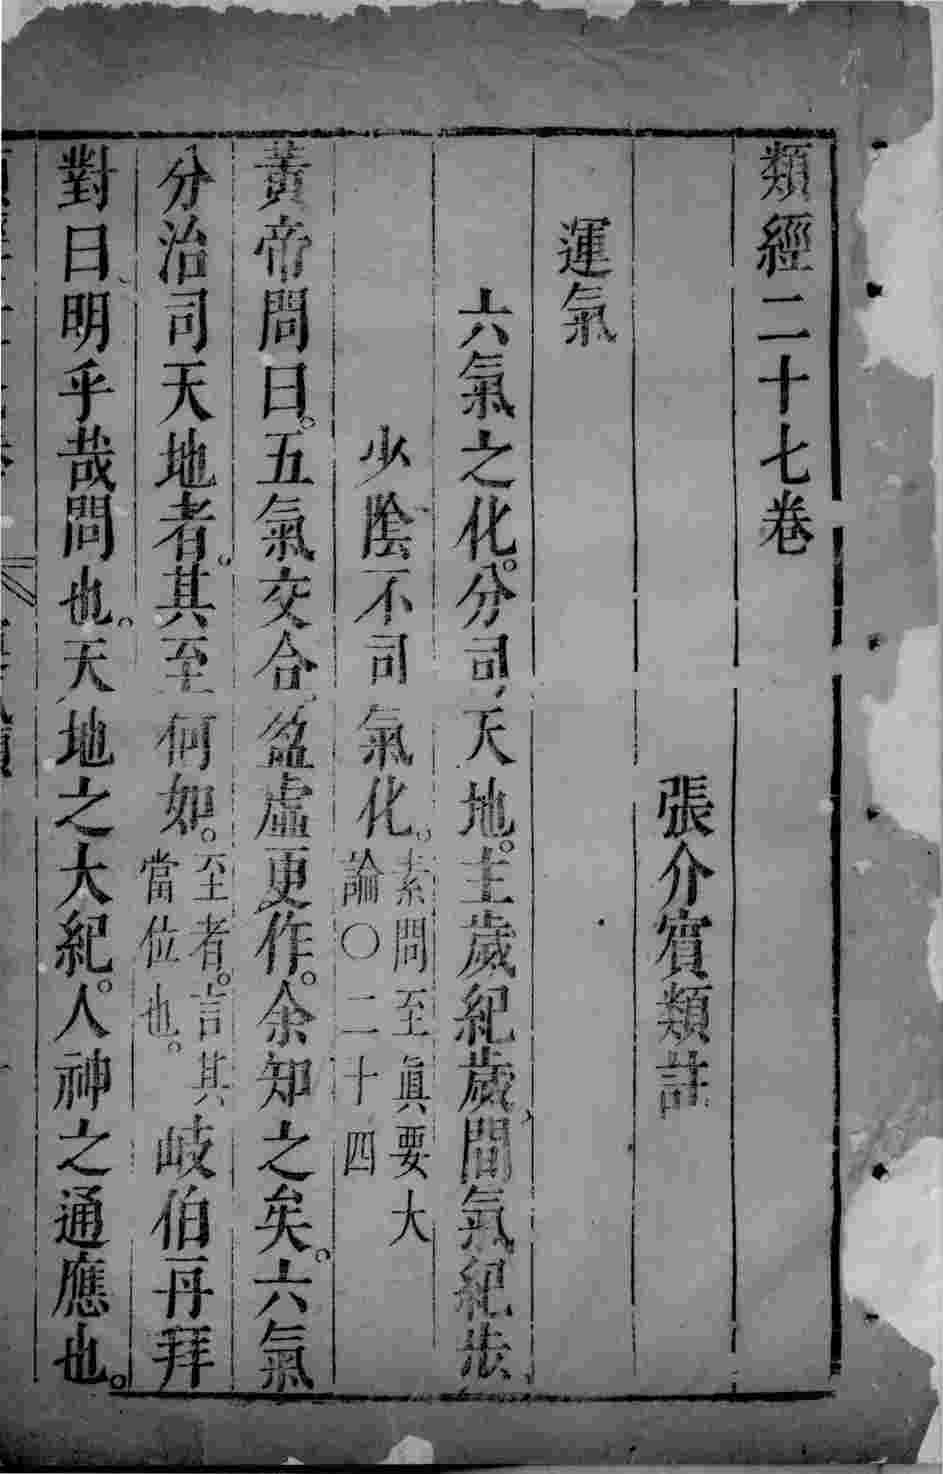 類經二十七卷
張介賓類註
運氣
六氣之化。分司天地。主歲紀歲。間氣紀步
少陰不司氣化。素問至眞要大
論〇二十四
黃帝問曰。五氣交合。盈虛更作。余知之矣。六氣
分治司天地者。其至何如。至者。言其
當位也。岐伯再拜
對曰。明乎哉問也。天地之大紀。人神之通應也。